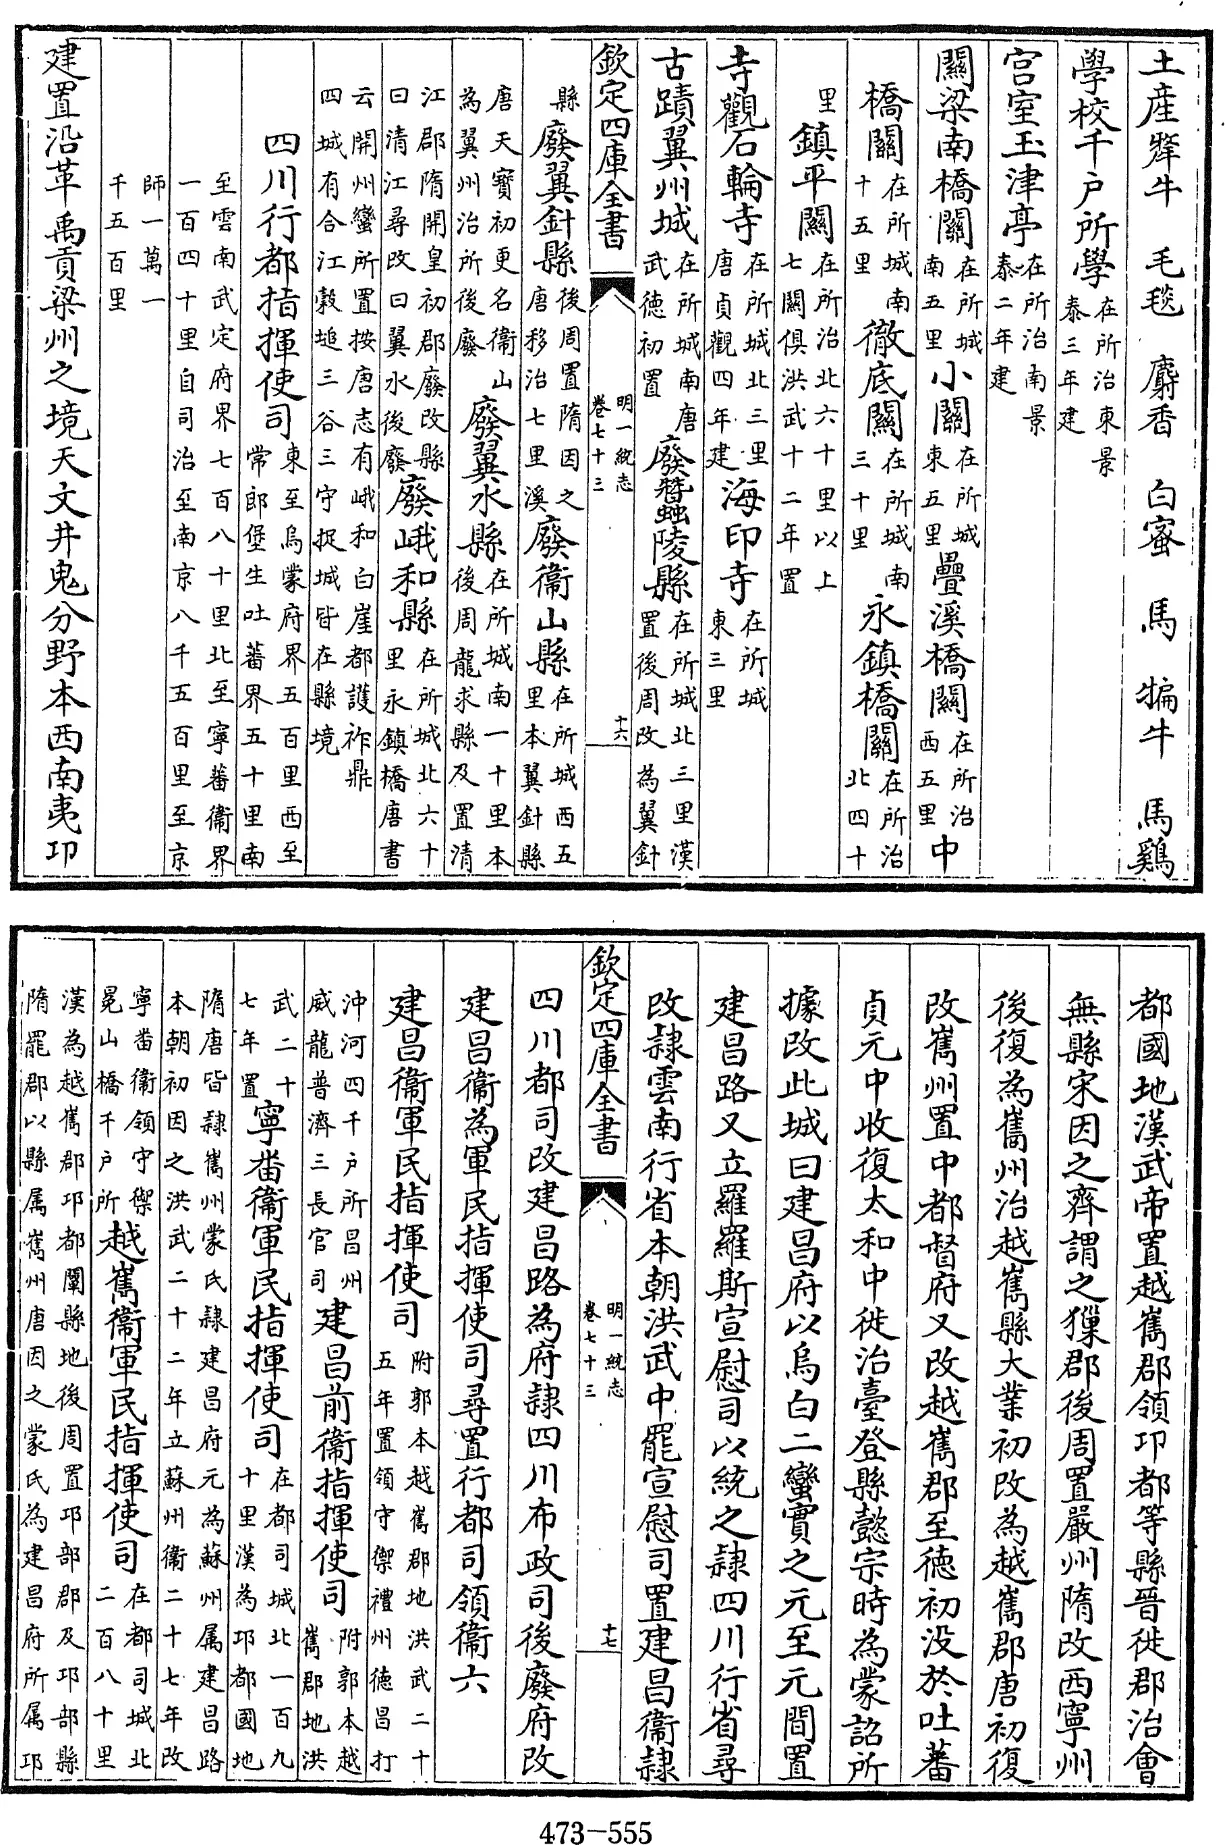 土産犛牛　毛毯　麝香　白蜜　馬　犏牛　馬鷄
學校千户所學在所治東景泰三年建
宫室玉津亭在所治南景泰二年建
關梁南橋關在所城南五里小關在所城東五里疊溪橋關在所治西五里中
橋關在所城南十五里徹底關在所城南三十里永鎮橋關在所治北四十
里鎮平關在所治北六十里以上七關俱洪武十二年置
寺觀石輪寺在所城北三里唐貞觀四年建海印寺在所城東三里
古蹟翼州城在所城南唐武徳初置廢蠶陵縣在所城北三里漢置後周改為翼針
欽定四庫全書
明一統志
卷七十三
十六
縣廢翼針縣後周置隋因之唐移治七里溪廢衞山縣在所城西五里本翼針縣
唐天寶初更名衞山為翼州治所後廢廢翼水縣在所城南一十里本後周龍求縣及置清
江郡隋開皇初郡廢改縣曰清江尋改曰翼水後廢廢峨和縣在所城北六十里永鎮橋唐書
云開州蠻所置按唐志有峨和白崖都護祚鼎四城有合江穀塠三谷三守捉城皆在縣境
四川行都指揮使司東至烏蒙府界五百里西至常郎堡生吐蕃界五十里南
至雲南武定府界七百八十里北至寧蕃衞界一百四十里自司治至南京八千五百里至京
師一萬一千五百里
建置沿革禹貢梁州之境天文井鬼分野本西南夷卭
都國地漢武帝置越嶲郡領卭都等縣晉徙郡治會
無縣宋因之齊謂之獠郡後周置嚴州隋改西寧州
後復為嶲州治越嶲縣大業初改為越嶲郡唐初復
改嶲州置中都督府又改越嶲郡至德初没於吐蕃
貞元中收復太和中徙治臺登縣懿宗時為蒙詔所
據改此城曰建昌府以烏白二蠻實之元至元間置
建昌路又立羅羅斯宣慰司以統之隷四川行省尋
改隷雲南行省本朝洪武中罷宣慰司置建昌衞隷
欽定四庫全書
明一統志
卷七十三
十七
四川都司改建昌路為府隷四川布政司後廢府改
建昌衞為軍民指揮使司尋置行都司領衞六
建昌衞軍民指揮使司附郭本越嶲郡地洪武二十五年置領守禦禮州德昌打
沖河四千户所昌州威龍普濟三長官司建昌前衞指揮使司附郭本越嶲郡地洪
武二十七年置寧畨衞軍民指揮使司在都司城北一百九十里漢為邛都國地
隋唐皆隷嶲州蒙氏隷建昌府元為蘇州属建昌路本朝初因之洪武二十二年立蘇州衞二十七年改
寧畨衞領守禦冕山橋千户所越嶲衞軍民指揮使司在都司城北二百八十里
漢為越嶲郡邛都闌縣地後周置邛部郡及邛部縣隋罷郡以縣属嶲州唐因之蒙氏為建昌府所属邛
473-555